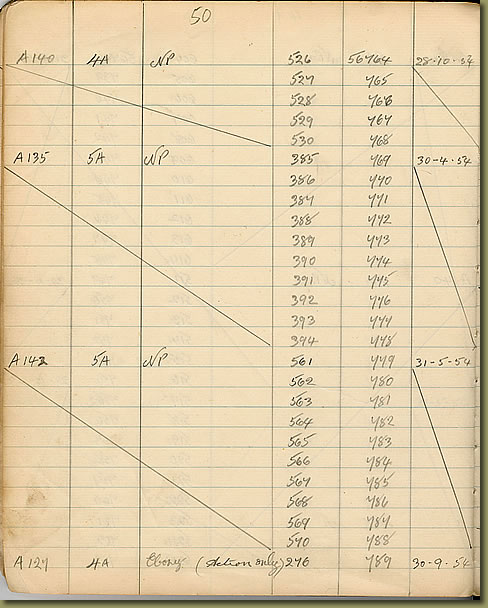 50
A140 4A NP 526 56764 28-10-54
527 765
528 766
529 767
530 768
A135 5A NP 385 769 30-4-54
386 770
387 771
388 772
389 773
390 774
391 775
392 776
393 777
394 778
A142 5A NP 561 779 31-5-54
562 780
563 781
564 782
565 783
566 784
567 785
568 786
569 787
570 788
A127 4A Ebony (Action only) 276 789 30-9-54